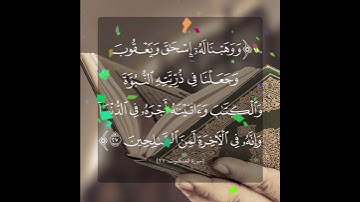 ﴿وَوَهَبْنَا لَهُۥٓ إِسْحَٰقَ وَيَعْقُوبَ
وَجَعَلْنَا فِي ذُرِّيَّتِهِ ٱلنُّبُوَّةَ
وَٱلْكِتَٰبَ وَءَاتَيْنَٰهُ أَجْرَهُۥ فِي ٱلدُّنْيَا
وَإِنَّهُۥ فِي ٱلْأٓخِرَةِ لَمِنَ ٱلصَّٰلِحِينَ ٢٧﴾